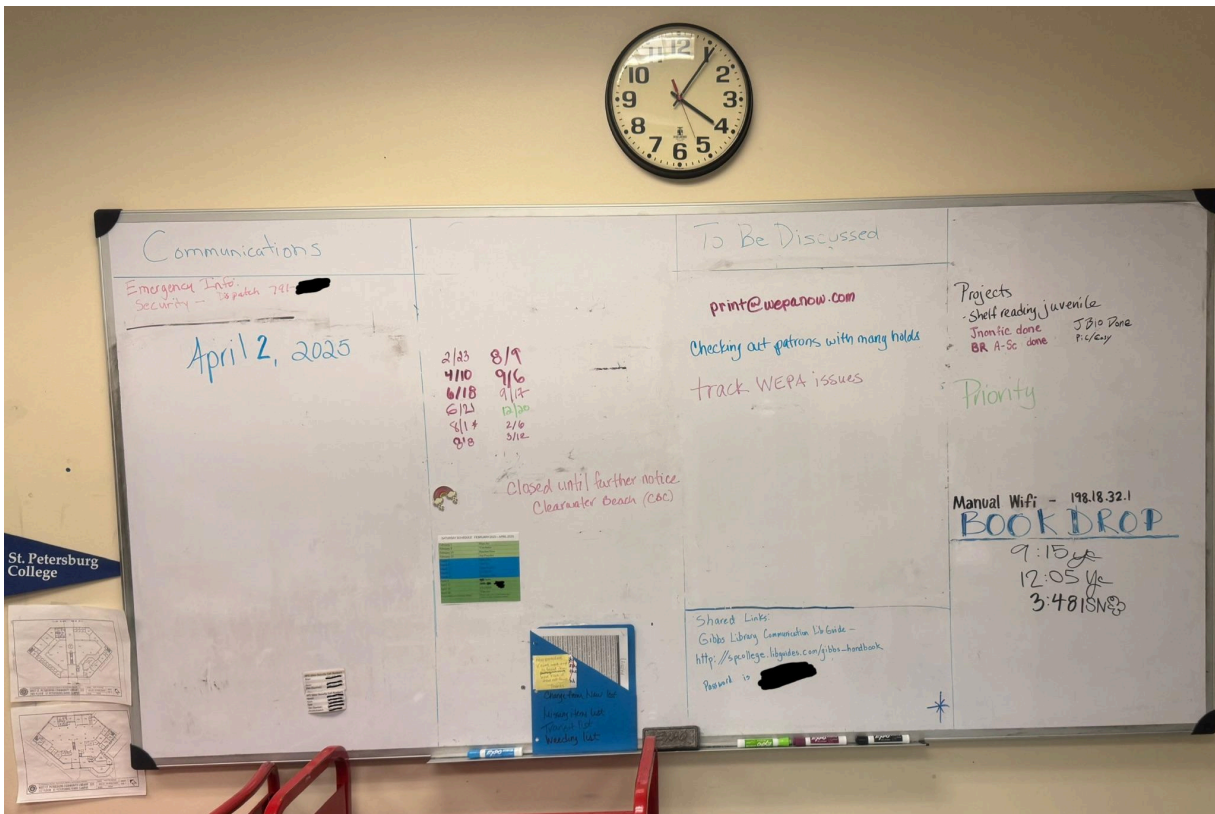 11 12 1
10 2
9 3
8 4
7 6 5
Communications
Emergency Info:
Security - Dispatch 791-
April 2, 2025
2/23 8/9
4/10 9/6
6/18 9/17
6/21 12/20
8/1 2/6
8/8 3/12
Closed until further notice
Clearwater Beach (CBC)
Change from New list
Missing item list
Transit list
Weeding list
To Be Discussed
print@wepanow.com
Checking out patrons with many holds
track WEPA issues
Shared Links:
Gibbs Library Communication LibGuide -
http://spcollege.libguides.com/gibbs-handbook
Password is
Projects
- Shelf reading juvenile
Jnonfic done
JBio Done
BR A-Sc done
Pic/Easy
Priority
Manual Wifi - 198.18.32.1
BOOK DROP
9:15 yc
12:05 yc
3:48 ISN
EXPO
St. Petersburg
College